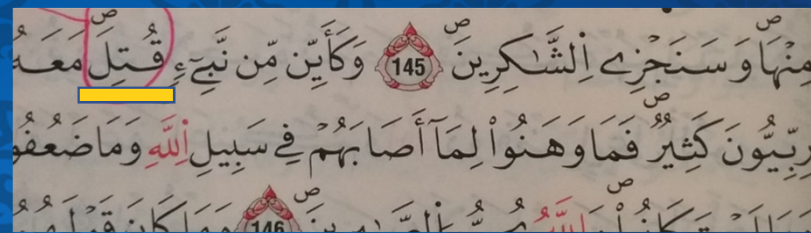 مِنْهَا وَسَنَجْزِے اِ۬لشَّٰكِرِينَۖ 145 وَكَأَيِّن مِّن نَّبِيٓءٖ قُتِلَۖ مَعَهُ
رِبِّيُّونَ كَثِيرٞۖ فَمَا وَهَنُواْ لِمَآ أَصَابَهُمْ فِے سَبِيلِ اِ۬للَّهِ وَمَا ضَعُفُو
146